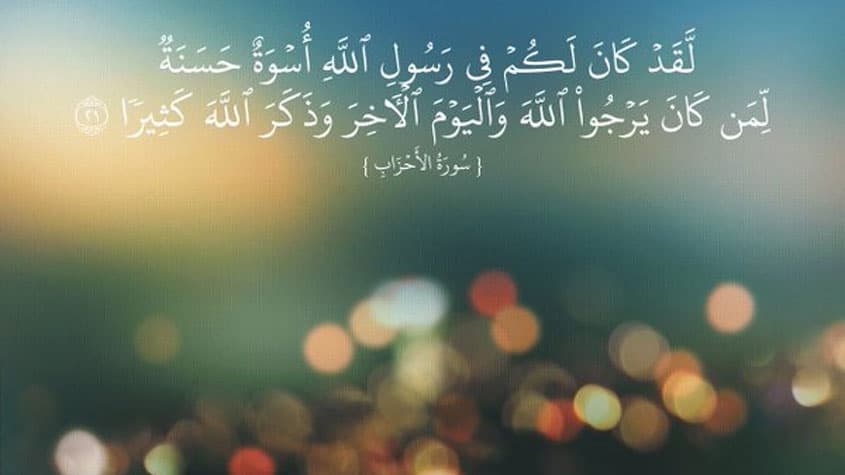 لَّقَدۡ كَانَ لَكُمۡ فِي رَسُولِ ٱللَّهِ أُسۡوَةٌ حَسَنَةٞ
لِّمَن كَانَ يَرۡجُواْ ٱللَّهَ وَٱلۡيَوۡمَ ٱلۡأٓخِرَ وَذَكَرَ ٱللَّهَ كَثِيرٗا ٢١
{ سُورَةُ الأَحْزَابِ }